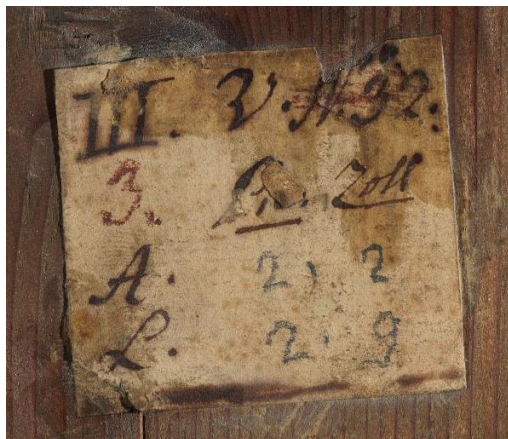 III. V. N. 32.
3. Zoll
A. 2, 2
L. 2. 9